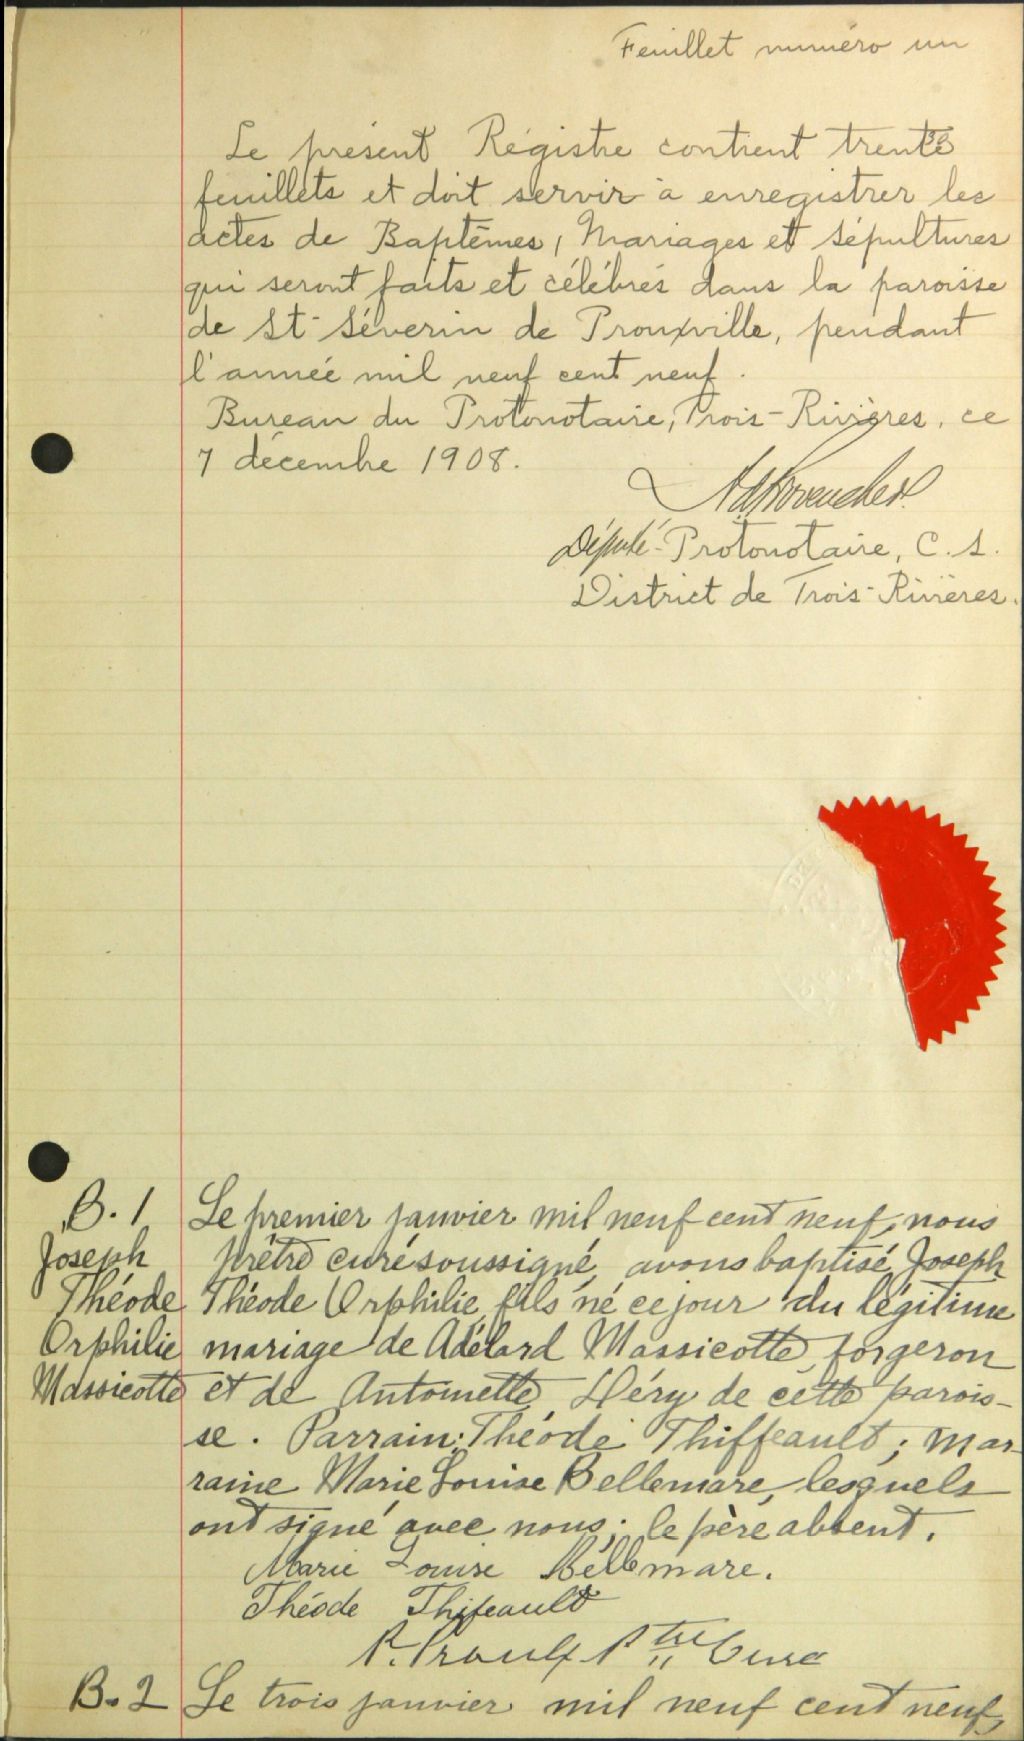 Feuillet numéro un
Le présent Régistre contient trente
feuillets et doit servir à enregistrer les
actes de Baptêmes, Mariages et Sépultures
qui seront faits et célébrés dans la paroisse
de St-Séverin de Prouxville, pendant
l'année mil neuf cent neuf.
Bureau du Protonotaire, Trois-Rivières, ce
7 décembre 1908.
Député-Protonotaire, C. S.
District de Trois-Rivières.
B. 1
Joseph
Théode
Orphilie
Massicotte
Le premier janvier mil neuf cent neuf, nous
prêtre curé soussigné, avons baptisé Joseph
Théode Orphilie, fils né ce jour du légitime
mariage de Adélard Massicotte, forgeron
et de Antoinette Déry de cette parois-
se. Parrain: Théode Thiffeault; mar-
raine Marie Louise Bellemare, lesquels
ont signé avec nous; le père absent.
Marie Louise Bellemare.
Théode Thifeault
P. Proulx Ptre Curé
B. 2
Le trois janvier mil neuf cent neuf,